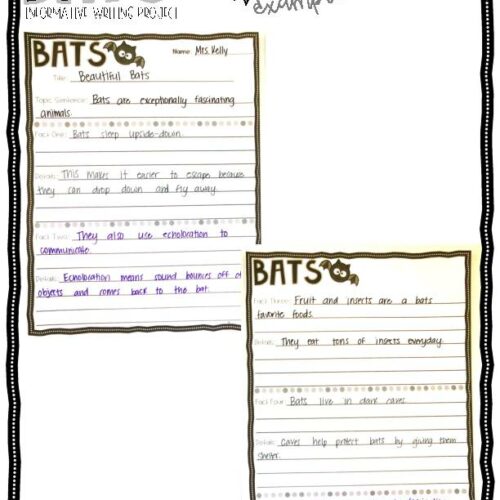 INFORMATIVE WRITING PROJECT
example
BATS
Name: Mrs. Kelly
Title: Beautiful Bats
Topic Sentence: Bats are exceptionally fascinating
animals.
Fact One: Bats sleep upside-down.
Details: This makes it easier to escape because
they can drop down and fly away.
Fact Two: They also use echolocation to
communicate.
Details: Echolocation means sound bounces off of
objects and comes back to the bat.
BATS
Fact Three: Fruit and insects are a bats
favorite foods.
Details: They eat tons of insects everyday.
Fact Four: Bats live in dark caves.
Details: Caves help protect bats by giving them
shelter.